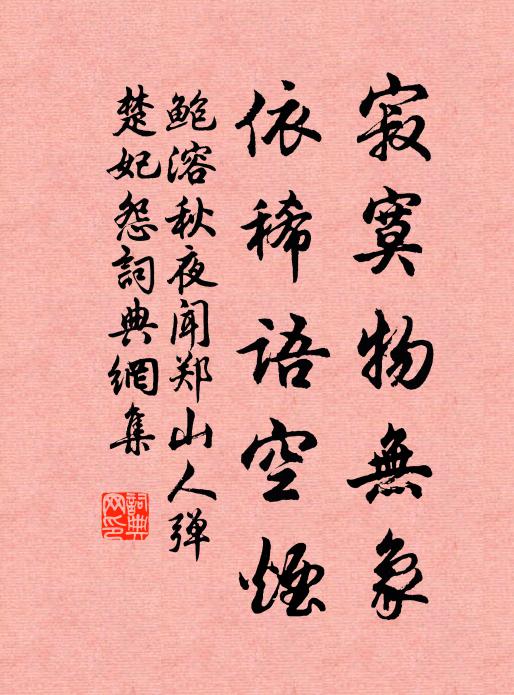 寂寞物無象
依稀語空煙
鲍溶秋夜闻郑山人弹
楚妃怨詞典網集
詞典网印